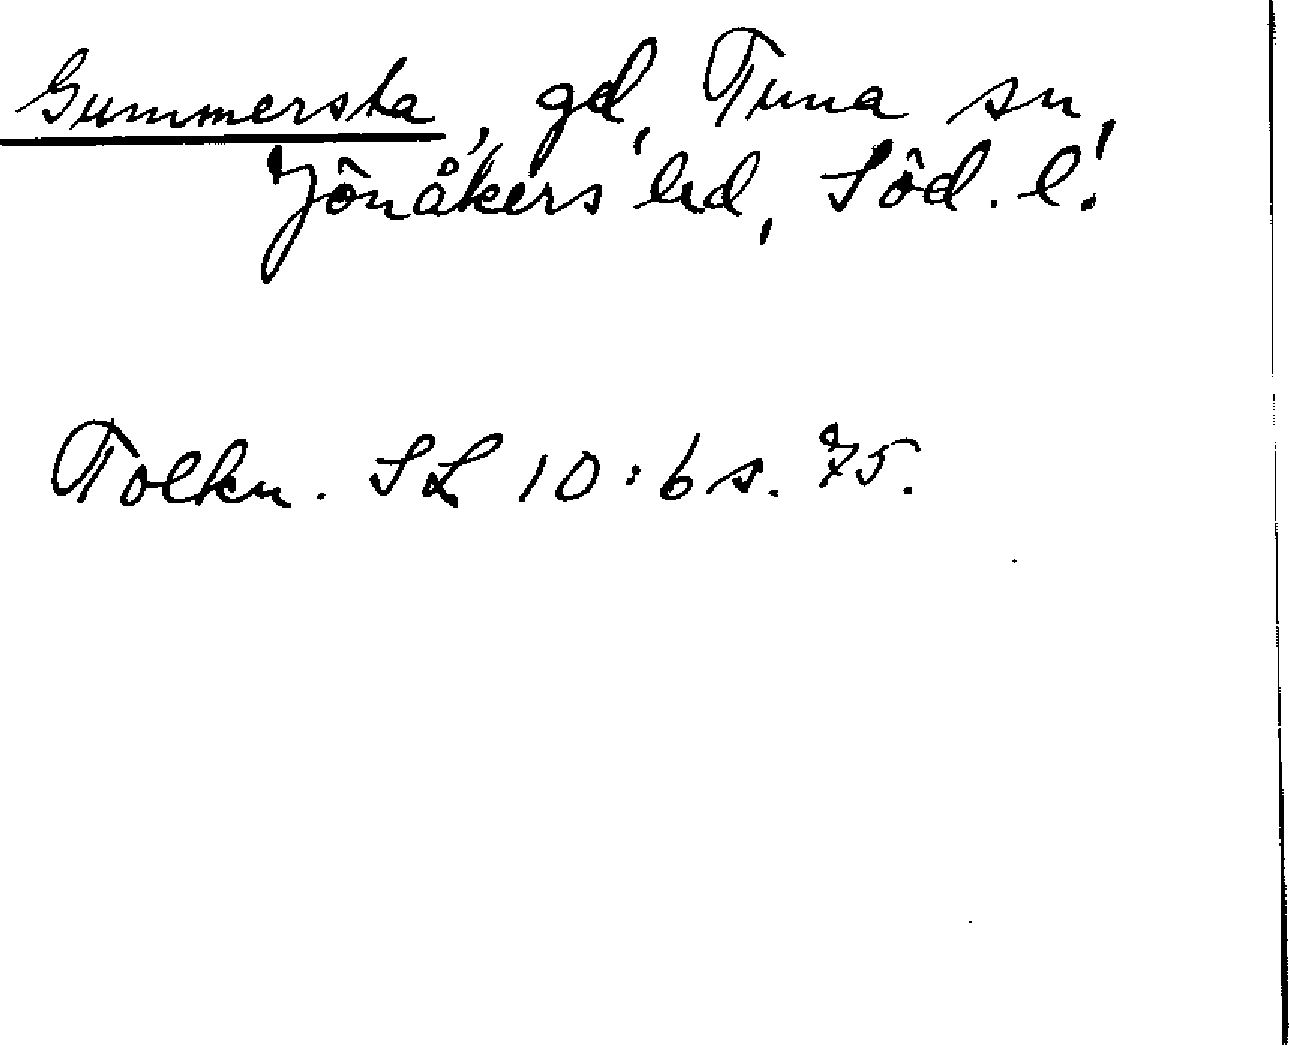 Gummersta, gd, Tuna sn,
Jönåkers hd, Söd. l.
Tolkn. SL 10:6 s. 75.